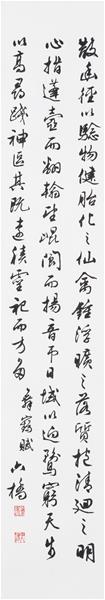 散幽經以驗物偉胎化之仙禽鍾浮曠之藻質抱清迥之明
心指蓬壺而翻翰望崐閬而揚音帀日域以迴騖窮天步
以高尋踐神區其既遠積靈祀而方多 舞鶴賦